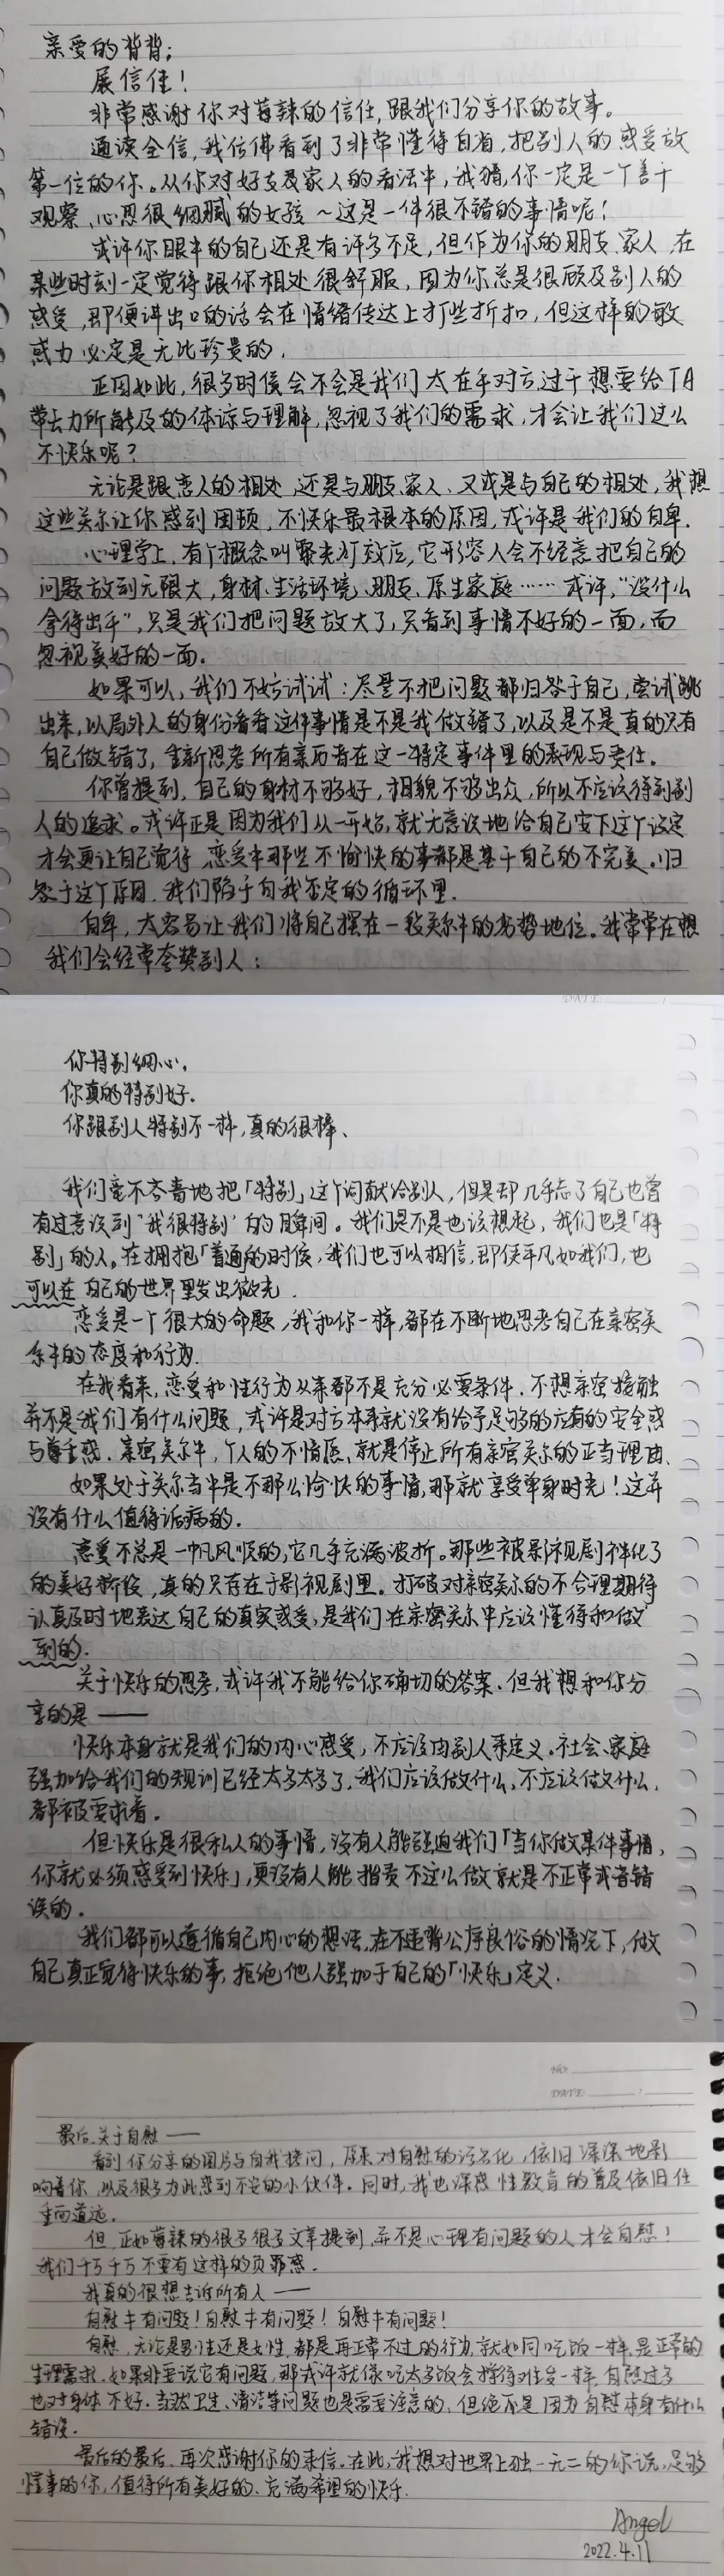 亲爱的背背:
展信佳!
非常感谢你对莓辣的信任,跟我们分享你的故事。
通读全信,我仿佛看到了非常懂得自省,把别人的感受放
第一位的你。从你对好友及家人的看法中,我猜,你一定是一个善于
观察、心思很细腻的女孩~这是一件很不错的事情呢!
或许你眼中的自己还是有许多不足,但作为你的朋友、家人,在
某些时刻一定觉得跟你相处很舒服,因为你总是很顾及别人的
感受,即便讲出口的话会在情绪传达上打些折扣,但这样的敏
感力必定是无比珍贵的.
正因如此,很多时候会不会是我们太在乎对方,过于想要给TA
带去力所能及的体谅与理解,忽视了我们的需求,才会让我们这么
不快乐呢?
无论是跟恋人的相处,还是与朋友、家人、又或是与自己的相处,我想
这些关系让你感到困顿,不快乐最根本的原因,或许是我们的自卑.
心理学上,有个概念叫聚光灯效应,它形容人会不经意把自己的
问题放到无限大,身材、生活环境、朋友、原生家庭……或许,“没什么
拿得出手”,只是我们把问题放大了,只看到事情不好的一面,而
忽视美好的一面.
如果可以,我们不妨试试:尽量不把问题都归咎于自己,尝试跳
出来,以局外人的身份看看这件事情是不是我做错了,以及是不是真的只有
自己做错了,重新思考所有亲历者在这一特定事件里的表现与责任。
你曾提到,自己的身材不够好,相貌不够出众,所以不应该得到别
人的追求。或许正是因为我们从一开始,就无意识地给自己安下这个设定
才会更让自己觉得,恋爱中那些不愉快的事都是基于自己的不完美.归
咎于这个原因,我们陷于自我否定的循环里.
自卑,太容易让我们将自己摆在一段关系中的劣势地位。我常常在想
我们会经常夸赞别人:
你特别细心.
你真的特别好.
你跟别人特别不一样,真的很棒、
我们毫不吝啬地把「特别」这个词献给别人,但是却几乎忘了自己也曾
有过意识到“我很特别”的瞬间。我们是不是也该想起,我们也是「特
别」的人。在拥抱「普通」的时候,我们也可以相信,即便平凡如我们,也
可以在自己的世界里发出微光.
恋爱是一个很大的命题,我和你一样,都在不断地思考自己在亲密关
系中的态度和行为.
在我看来,恋爱和性行为从来都不是充分必要条件.不想亲密接触
并不是我们有什么问题,或许是对方本来就没有给予足够的应有的安全感
与尊重感.亲密关系中,个人的不情愿,就是停止所有亲密关系的正当理由.
如果处于关系当中是不那么愉快的事情,那就享受单身时光!这并
没有什么值得诟病的.
恋爱不总是一帆风顺的,它几乎充满波折。那些被影视剧神化了
的美好桥段,真的只存在于影视剧里.打破对亲密关系的不合理期待
认真及时地表达自己的真实感受,是我们在亲密关系中应该懂得和做
到的.
关于快乐的思考,或许我不能给你确切的答案.但我想和你分
享的是——
快乐本身就是我们的内心感受,不应该由别人来定义.社会、家庭
强加给我们的规训已经太多太多了,我们应该做什么,不应该做什么,
都被要求着。
但快乐是很私人的事情,没有人能强迫我们「当你做某件事情,
你就必须感受到快乐」,更没有人能指责不这么做就是不正常或者错
误的。
我们都可以遵循自己内心的想法,在不违背公序良俗的情况下,做
自己真正觉得快乐的事,拒绝他人强加于自己的「快乐」定义.
NO:
DATE:
最后,关于自慰——
看到你分享的图片与自我拷问,原来对自慰的污名化,依旧深深地影
响着你,以及很多为此感到不安的小伙伴.同时,我也深感性教育的普及依旧任
重而道远.
但,正如莓辣的很多很多文章提到,并不是心理有问题的人才会自慰!
我们千万千万不要有这样的负罪感.
我真的很想告诉所有人——
自慰牛有问题!自慰牛有问题!自慰牛有问题!
自慰,无论是男性还是女性,都是再正常不过的行为,就如同吃饭一样,是正常的
生理需求.如果非要说它有问题,那或许就像吃太多饭会撑得难受一样,自慰过多
也对身体不好.当然卫生、清洁等问题也是需要注意的,但绝不是因为自慰本身有什么
错误.
最后的最后,再次感谢你的来信.在此,我想对世界上独一无二的你说,足够
懂事的你,值得所有美好的、充满希望的快乐.
Angel
2022.4.11